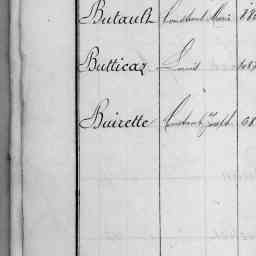 Butault Constant Marie
Butticaz Louis
Buirette Constant Joseph